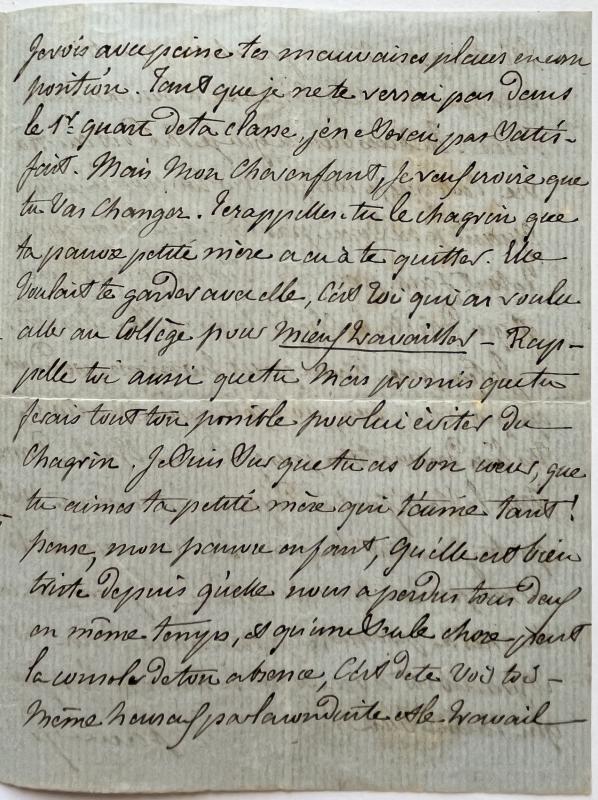 Je vois avec peine tes mauvaises places en com
position. Tant que je ne te verrai pas dans
le 1er quart de ta classe, je ne serai pas satis-
fait. Mais mon cher enfant, je veux croire que
tu vas changer. Te rappelles-tu le chagrin que
ta pauvre petite mère a eu à te quitter. Elle
voulait te garder avec elle, c'est toi qui as voulu
aller au Collège pour mieux travailler - Rap-
pelle toi aussi que tu m'as promis que tu
ferais tout ton possible pour lui éviter du
chagrin. Je suis sur que tu as bon coeur, que
tu aimes ta petite mère qui t'aime tant!
pense, mon pauvre enfant, qu'elle est bien
triste depuis qu'elle nous a perdus tous deux
en même temps, et qu'une seule chose peut
la consoler de ton absence, c'est de te voir toi-
même heureux par la conduite et le travail